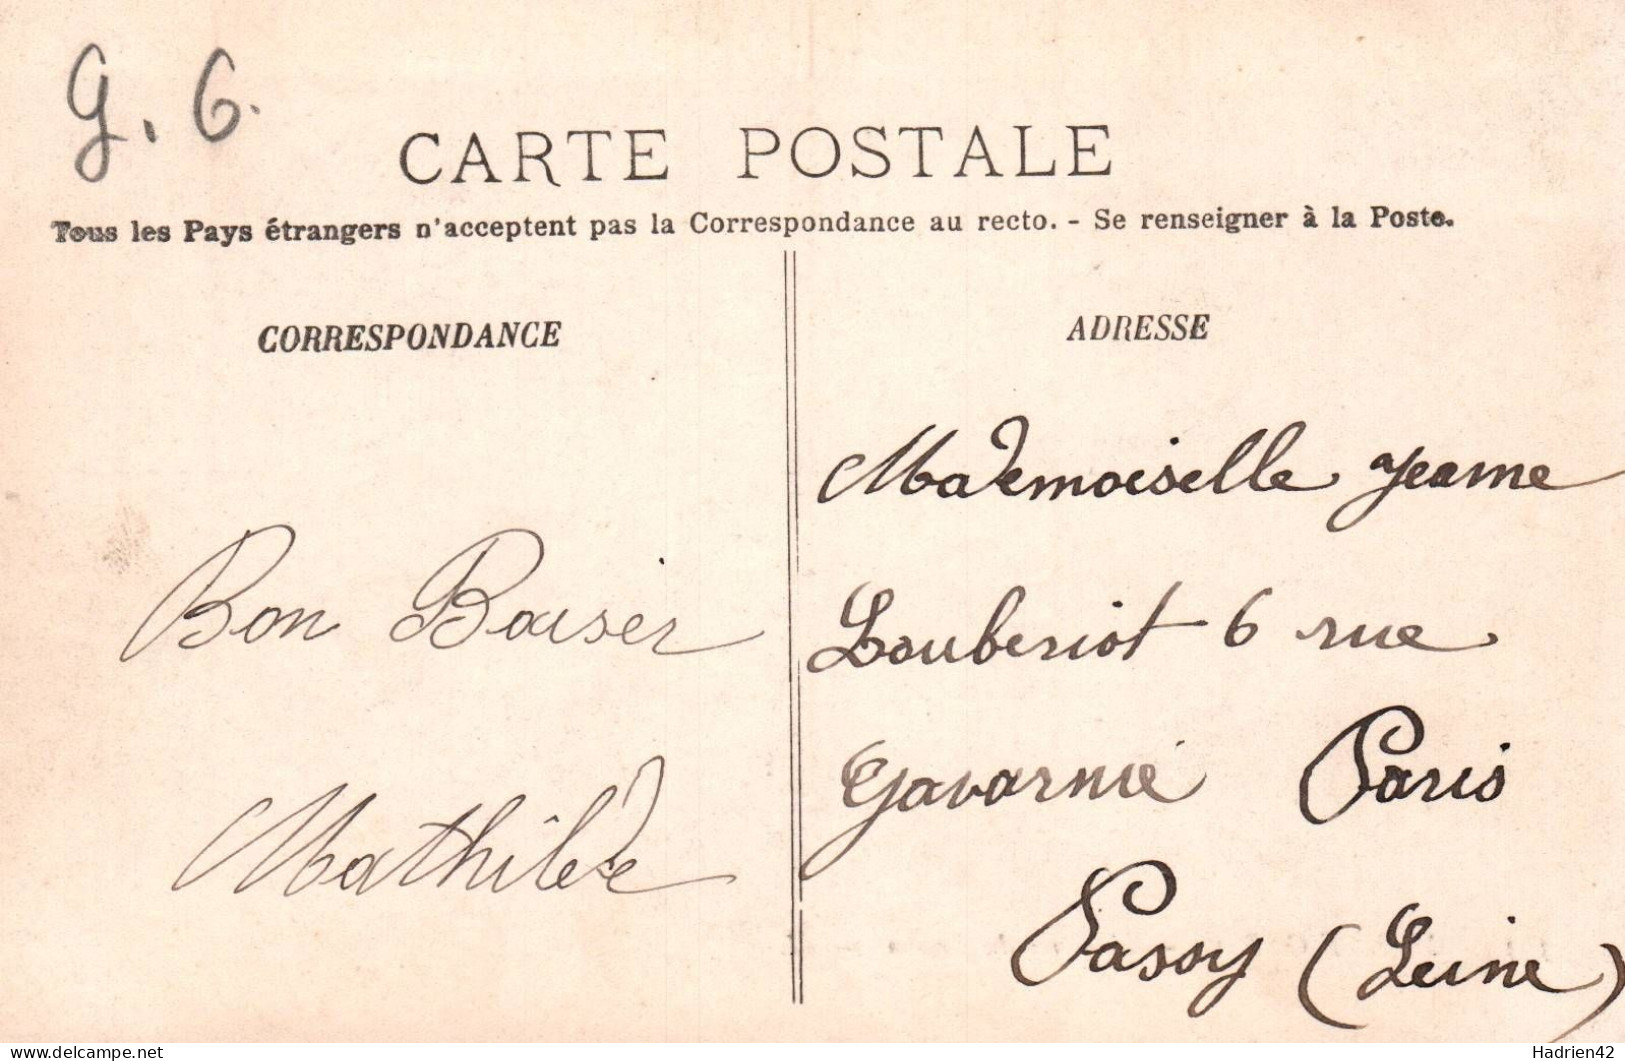 G. G.
CARTE POSTALE
Tous les Pays étrangers n'acceptent pas la Correspondance au recto. - Se renseigner à la Poste.
CORRESPONDANCE
Bon Baiser
Mathilde
ADRESSE
Mademoiselle Jeanne
Louberiot 6 rue
Gavarnie Paris
Passy (Seine)
delcampe.net
Hadrien42